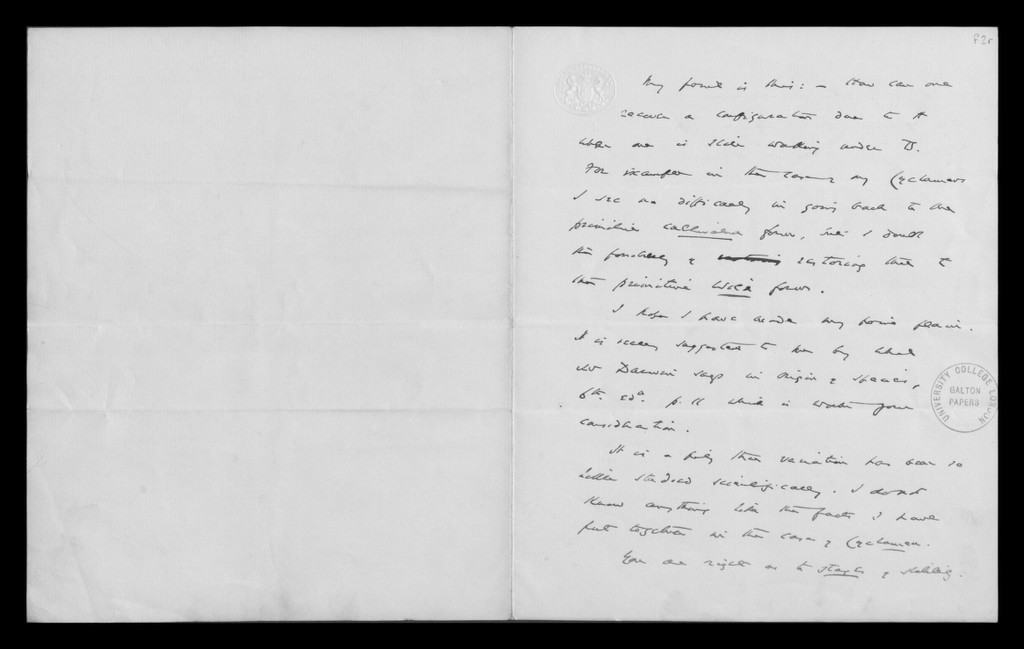 f2r
My point is this: – How can one
recover a configuration due to A
when one is still working under B.
For example in the case of my Cyclamens
I see no difficulty in going back to the
primitive cultivated form, but I doubt
the possibility of restoring this to
the primitive wild form.
I hope I have made my point plain.
It is really suggested to me by what
Mr Darwin says in Origin of Species,
6th. Edn. p. 11 which is worth your
consideration.
It is a pity that variation has been so
little studied scientifically. I do not
know anything like the facts I have
put together in the case of Cyclamen.
You are right as to stages of stability.
UNIVERSITY COLLEGE LONDON
GALTON
PAPERS